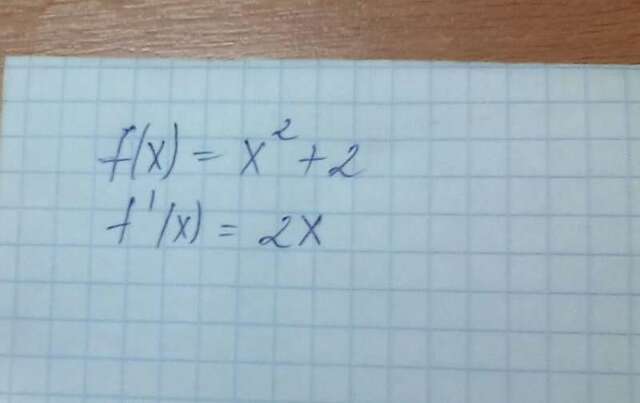 f(x) = x² + 2
f'(x) = 2x